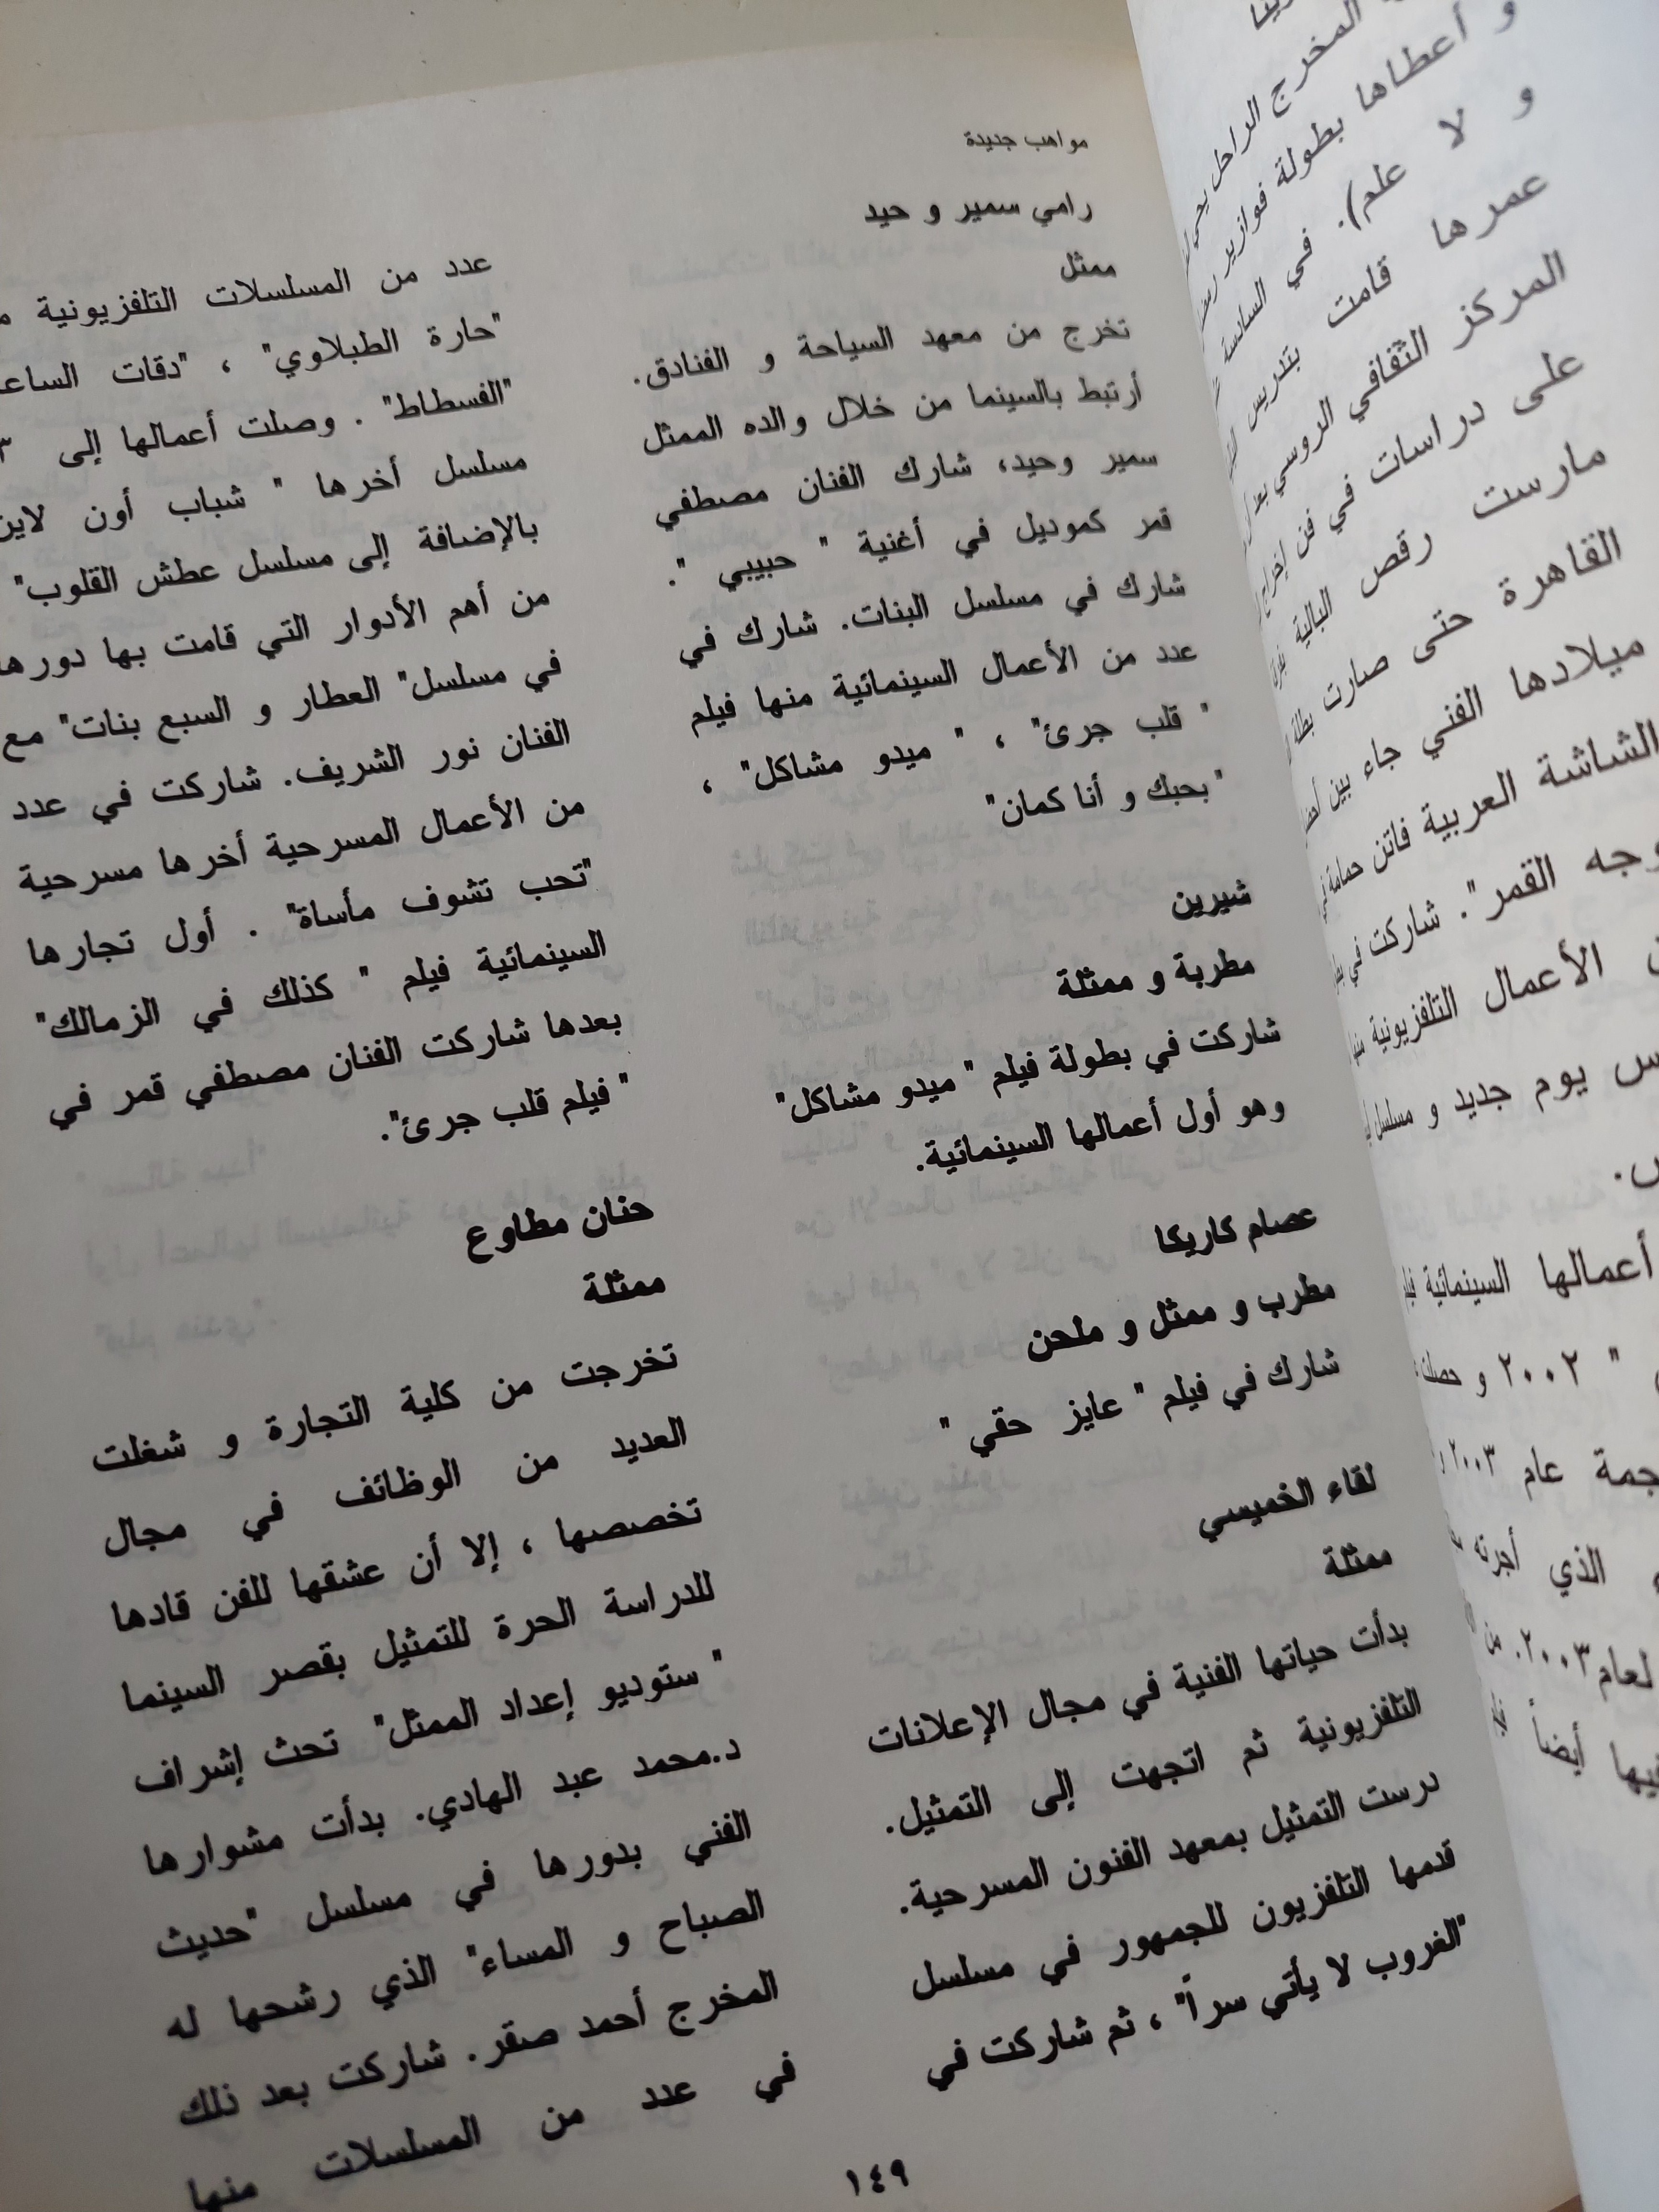 مواهب جديدة
رامي سمير و حيد
ممثل
تخرج من معهد السياحة و الفنادق.
أرتبط بالسينما من خلال والده الممثل
سمير وحيد، شارك الفنان مصطفي
قمر كموديل في أغنية " حبيبي ".
شارك في مسلسل البنات. شارك في
عدد من الأعمال السينمائية منها فيلم
" قلب جرئ" ، " ميدو مشاكل" ،
"بحبك و أنا كمان"
شيرين
مطربة و ممثلة
شاركت في بطولة فيلم " ميدو مشاكل"
وهو أول أعمالها السينمائية.
عصام كاريكا
مطرب و ممثل و ملحن
شارك في فيلم " عايز حقي "
لقاء الخميسي
ممثلة
بدأت حياتها الفنية في مجال الإعلانات
التلفزيونية ثم اتجهت إلى التمثيل.
درست التمثيل بمعهد الفنون المسرحية.
قدمها التلفزيون للجمهور في مسلسل
"الغروب لا يأتي سراً" ، ثم شاركت في
عدد من المسلسلات التلفزيونية
"حارة الطبلاوي" ، "دقات
"الفسطاط" . وصلت أعمالها إلى
مسلسل أخرها " شباب أون لاين
بالإضافة إلى مسلسل عطش القلوب"
من أهم الأدوار التي قامت بها دورها
في مسلسل" العطار و السبع بنات" مع
الفنان نور الشريف. شاركت في عدد
من الأعمال المسرحية أخرها مسرحية
"تحب تشوف مأساة" . أول تجارها
السينمائية فيلم " كذلك في الزمالك"
بعدها شاركت الفنان مصطفي قمر في
" فيلم قلب جرئ".
حنان مطاوع
ممثلة
تخرجت من كلية التجارة و شغلت
العديد من الوظائف في مجال
تخصصها ، إلا أن عشقها للفن قادها
للدراسة الحرة للتمثيل بقصر السينما
" ستوديو إعداد الممثل" تحث إشراف
د.محمد عبد الهادي. بدأت مشوارها
الفني بدورها في مسلسل "حديث
الصباح و المساء" الذي رشحها له
المخرج أحمد صقر. شاركت بعد ذلك
في عدد من المسلسلات منها
١٤٩
المخرج الراحل يحي
و أعطاها بطولة فوازير
و لا علم). في السادسة
عمرها قامت بتدريس
المركز الثقافي الروسي بعد
على دراسات في فن إخراج
مارست رقص البالية
القاهرة حتى صارت بطلة
ميلادها الفني جاء بين
الشاشة العربية فاتن حمامة
وجه القمر". شاركت في
الأعمال التلفزيونية منها
يوم جديد و مسلسل
أعمالها السينمائية
" ٢٠٠٢ و حصلت
عام ٢٠٠٣
الذي أجرته
لعام ٢٠٠٣. من
فيها أيضاً